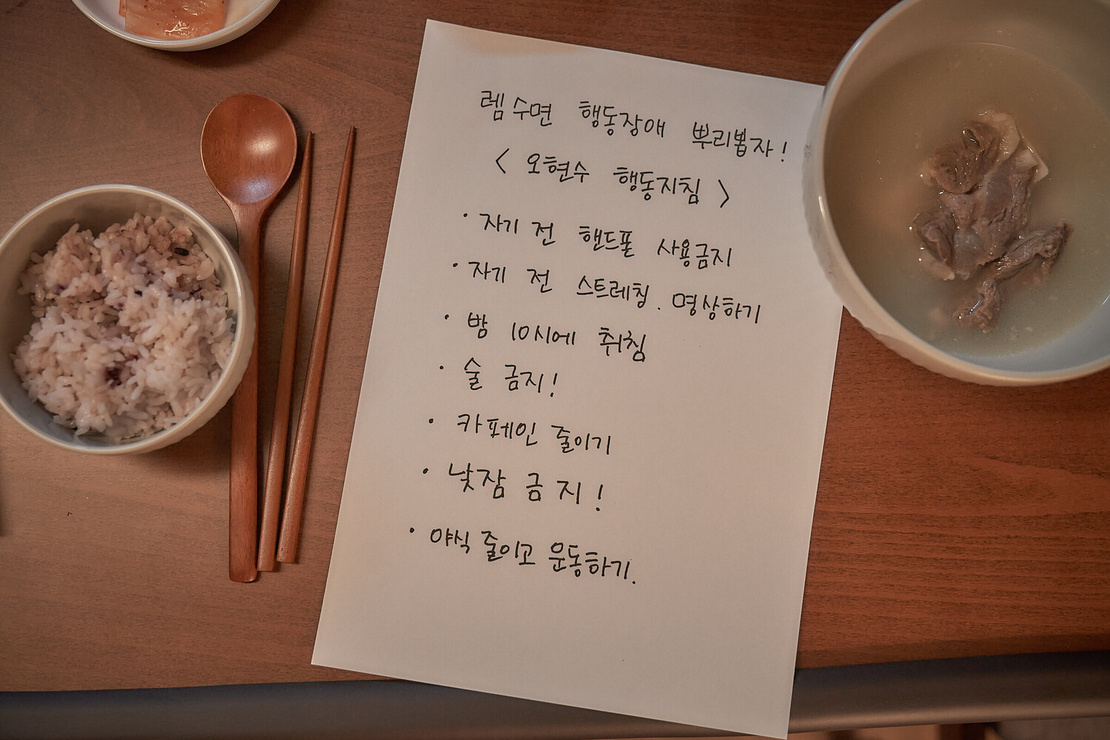 렘수면 행동장애 뿌리뽑자!
< 오현수 행동지침 >
· 자기 전 핸드폰 사용금지
· 자기 전 스트레칭. 명상하기
· 밤 10시에 취침
· 술 금지!
· 카페인 줄이기
· 낮잠 금지!
· 야식 줄이고 운동하기.